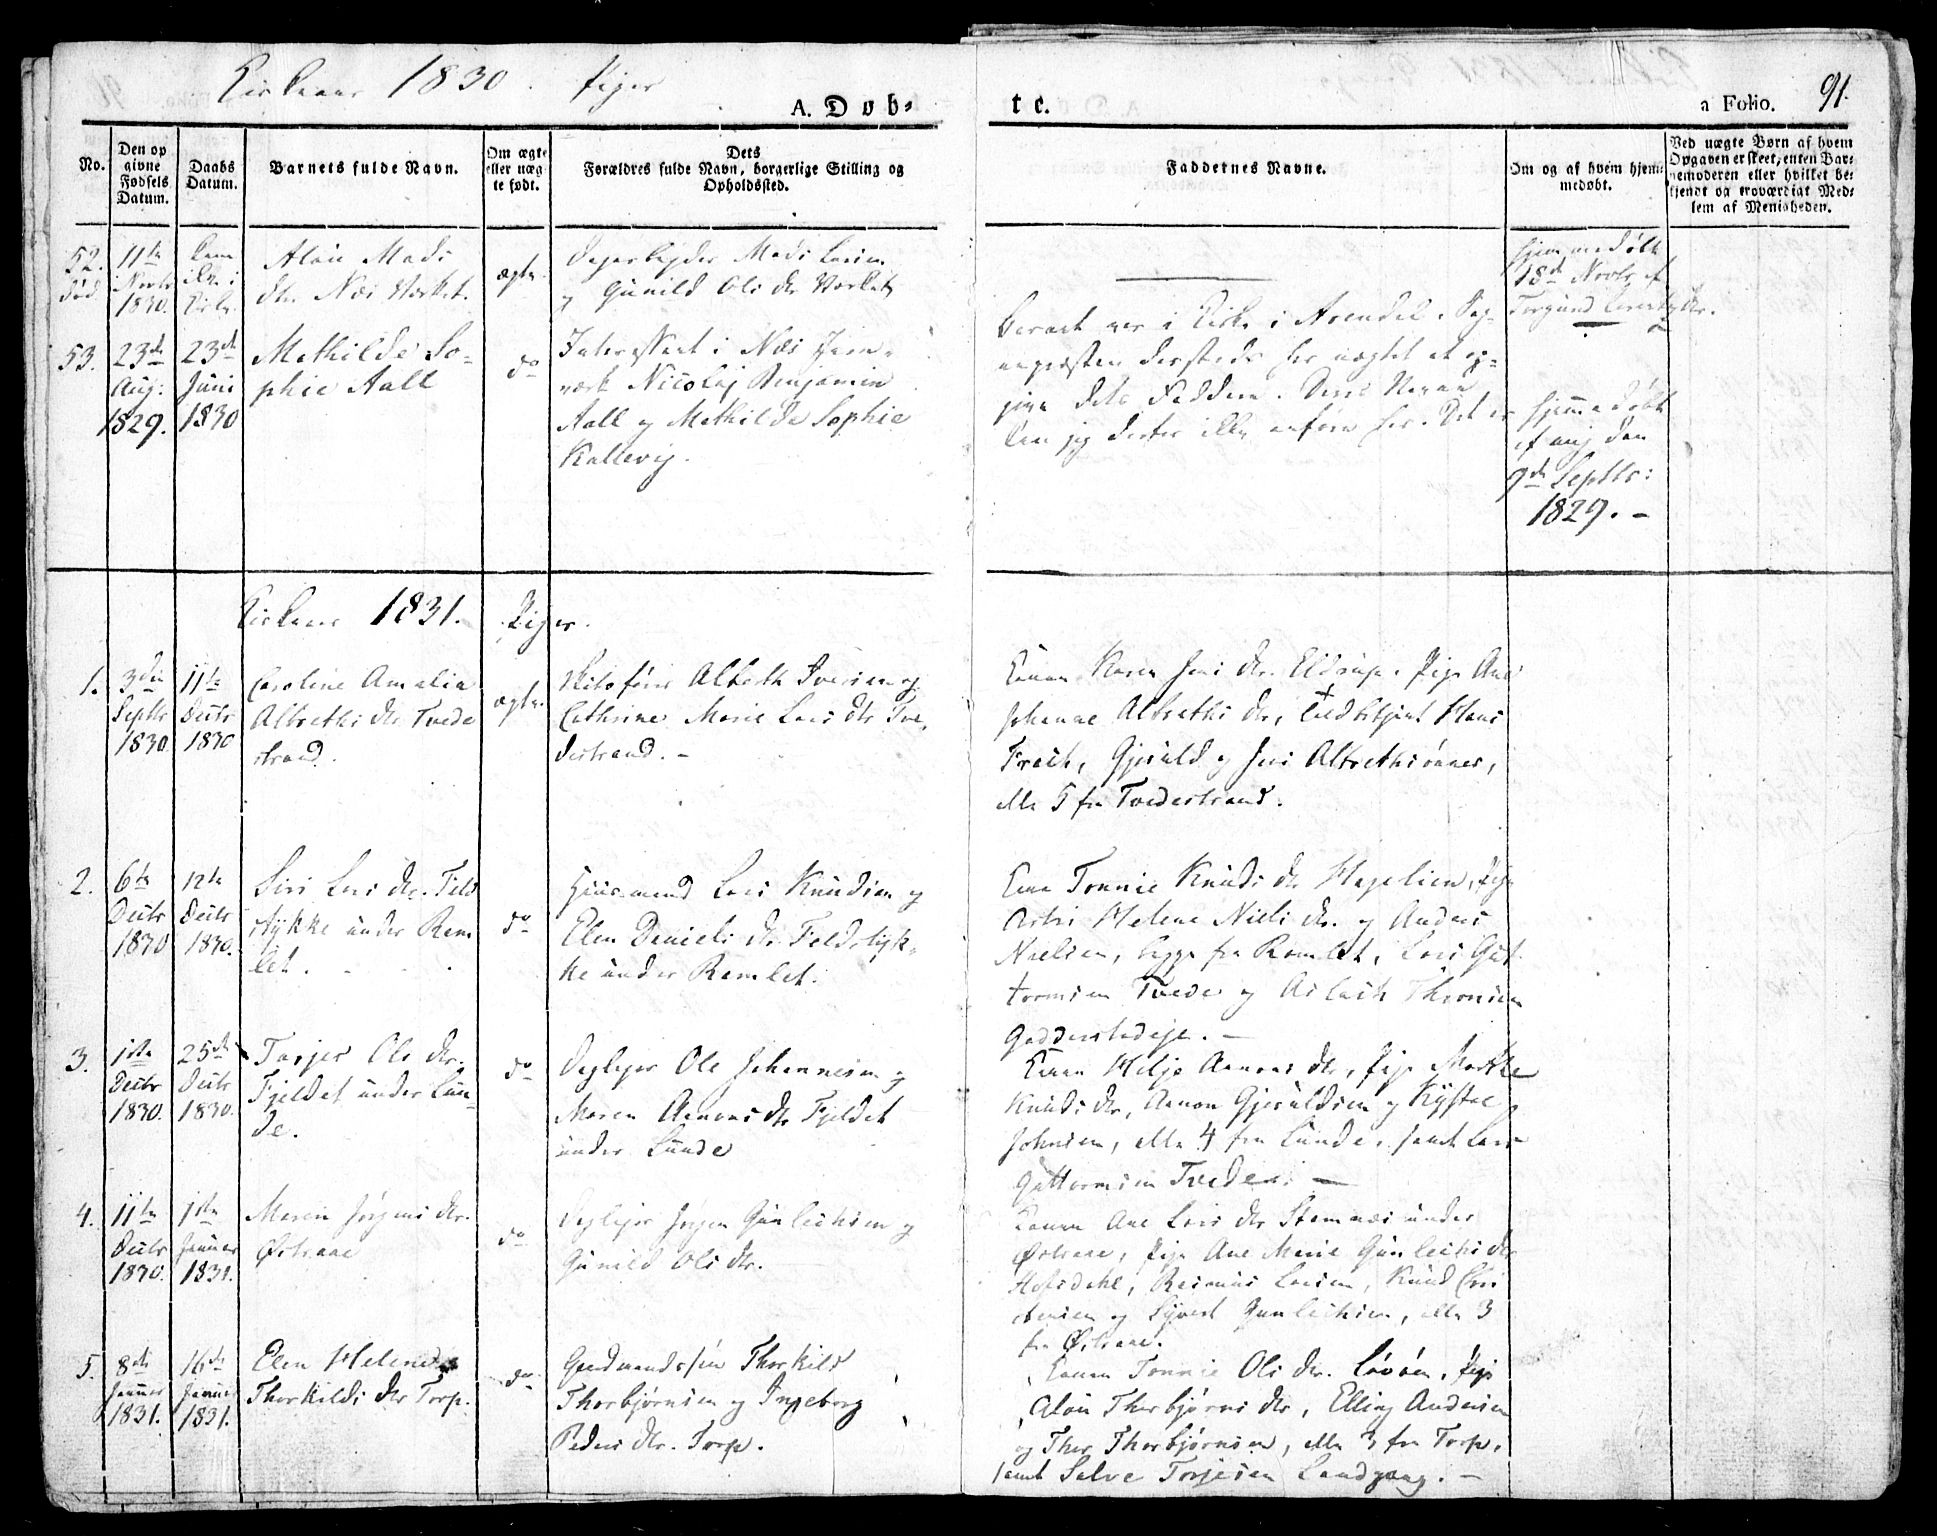 Kirkeaar 1830. Piger
A. Døb-
te.
a Folio. 91.
No.
Den op
givne
Fødsels
Datum.
Daabs
Datum.
Barnets fulde Navn.
Om ægte
eller uæg
te født.
Dets
Forældres fulde Navn, borgerlige Stilling og
Opholdssted.
Faddernes Navne.
Om og af hvem hjem-
medøbt.
Ved uægte Børn af hvem
Opgaven er skeet, enten Bar-
nemoderen eller hvilket be-
kjendt og troværdigt Med-
lem af Menigheden.
52.
død
11te
Novbr
1830.
Alou Mads
dtr. Næs Værket.
ægte
Mads Larsen
og Gunild Ols dtr Værket
hjemmedøbt
18de Novbr af
Torgund
53.
23de
Aug:
1829.
23de
Juni
1830
Mathilde So-
phie Aall
do
Interessent i Næs Jern-
værk Nicolaj Benjamin
Aall og Mathilde Sophie
Kallevig.
Barnet var i Kirke i Arendal. Sog-
nepræsten dersteds har nægtet at op-
give dets Faddere. Deres Navne
kan jeg derfor ikke anføre her. Det er
hjemmedøbt
af mig den
9de Septbr:
1829. -
Kirkeaar 1831. Piger.
1.
3die
Septbr
1830
11te
Decbr
1830
Caroline Amalia
Albreths dtr Tvede
strand.
ægte
Albreth Iversen og
Cathrine Marie Lars dtr Tve-
destrand. -
Konen Karen Jens dtr. Eldrup, Pige Ane
Johanne Albreths dtr, Hans
Gjeruld og Jens Albrethsønner,
alle 5 fra Tvedestrand.
2.
6te
Decbr
1830
12te
Decbr
1830.
Siri Lars dtr. Feld
stykke under Ram
let.
do
Huusmand Lars Knudsen og
Elen Daniels dtr Feldstyk-
ke under Ramlet.
Kone Tonnie Knuds dtr Hagelien, Pige
Astri Helene Niels dtr. og Anders
Nielsen, begge fra Ramlet, Lars Gut-
tormsen Tvede og Aslach Thronsen
Goderstedeje. -
3.
1ste
Decbr
1830.
25de
Decbr
1830.
Tarjer Ols dtr.
Fjeldet under Lun-
de.
do
Leylejer Ole Johannesen og
Maren Aanons dtr Fjeldet
under Lunde
Konen Helje Aanons dtr, Pige Marthe
Knuds dtr, Aanon Gjeruldsen og Kystol
Johnsen, alle 4 fra Lunde, samt Lars
Guttormsen Tvede. -
4.
11te
Decbr
1830.
1ste
Januar
1831.
Maren Jørgens dtr.
Østeraae
do
Leylejer Jørgen Gunleichsen og
Gunild Ols dtr.
Konen Ane Lars dtr Stamnæs under
Østeraae, Pige Ane Marie Gunleichs dtr
Hofsdahl, Rasmus Larsen, Knud Chri
stensen og Syvert Gunleichsen, alle 3
fra Østeraae.
5.
8de
Januar
1831.
16de
Januar
1831.
Elen Helene
Thorkilds dtr Torp.
do
Gaardmandssøn Thorkild
Thorbjørnsen og Ingeborg
Peders dtr. Torp.
Konen Tonnie Ols dtr. Løvøen, Pige
Alou Thorbjørns dtr, Elling Andersen
og Thor Thorbjørnsen, alle 3 fra Torp,
samt Salve Torjesen Landgang. -